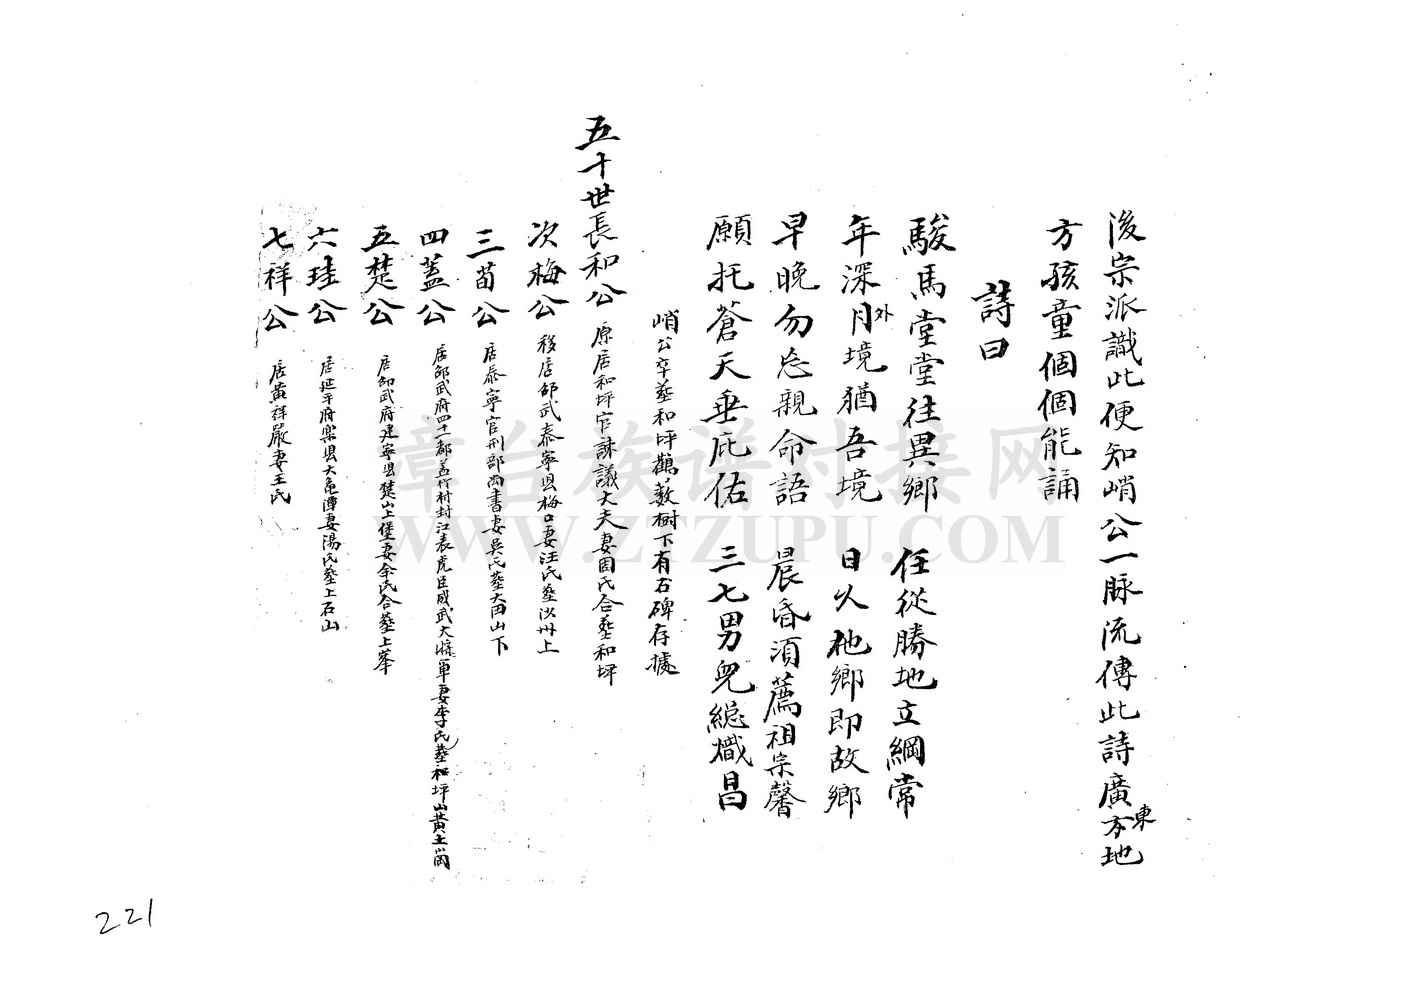 後宗派識此便知峭公一脉流傳此詩廣東方地
方孩童個個能誦
詩曰
駿馬堂堂往異鄉 任從勝地立綱常
年深月外境猶吾境 日久他鄉即故鄉
早晚勿忘親命語 晨昏須薦祖宗馨
願托蒼天垂庇佑 三七男兒總熾昌
峭公卒塟和坪鸛藪樹下有石碑存據
五十世長和公 原居和坪官諫議大夫妻固氏合塟和坪
次梅公 移居邵武泰寧县梅口妻汪氏塟沙州上
三荀公 居泰寧官刑部尚書妻吳氏塟大田山下
四蓋公 居邵武府四十一都盖竹村封江表虎臣威武大將軍妻李氏塟和坪山黄土崗
五楚公 居邵武府建寧县楚山上堡妻余氏合塟上峯
六珪公 居延平府樂县大魚潭妻湯氏塟上石山
七祥公 居黄祥嚴妻王氏
章台族谱对接网
WWW.ZTZUPU.COM
221